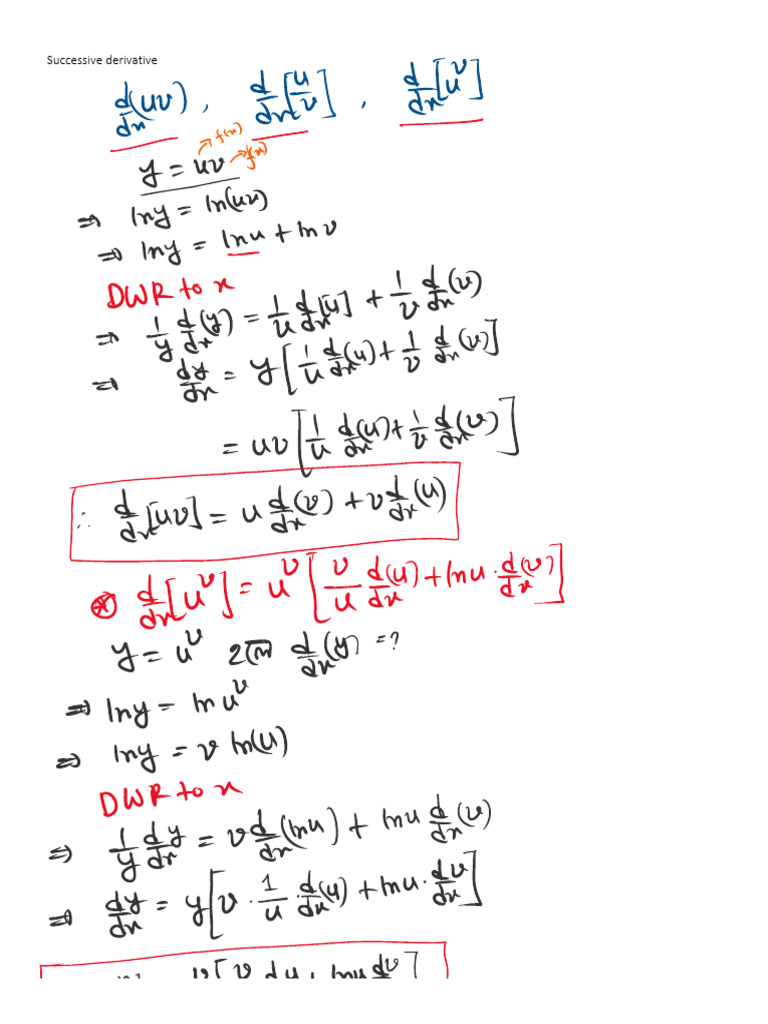 Successive derivative
d/dx(uv), d/dx[u/v], d/dx[u^v]
→f(x)
y = uv →f(x)
⇒ lny = ln(uv)
⇒ lny = lnu + lnv
DWR to x
⇒ 1/y d/dx(y) = 1/u d/dx[u] + 1/v d/dx(v)
⇒ dy/dx = y[1/u d/dx(u) + 1/v d/dx(v)]
= uv[1/u d/dx(u) + 1/v d/dx(v)]
∴ d/dx[uv] = u d/dx(v) + v d/dx(u)
⊛ d/dx[u^v] = u^v[v/u d/dx(u) + lnu · d/dx(v)]
y = u^v হলে d/dx(y) = ?
⇒ lny = ln u^v
⇒ lny = v ln(u)
DWR to x
⇒ 1/y dy/dx = v d/dx(lnu) + lnu d/dx(v)
⇒ dy/dx = y[v · 1/u · d/dx(u) + lnu · dv/dx]